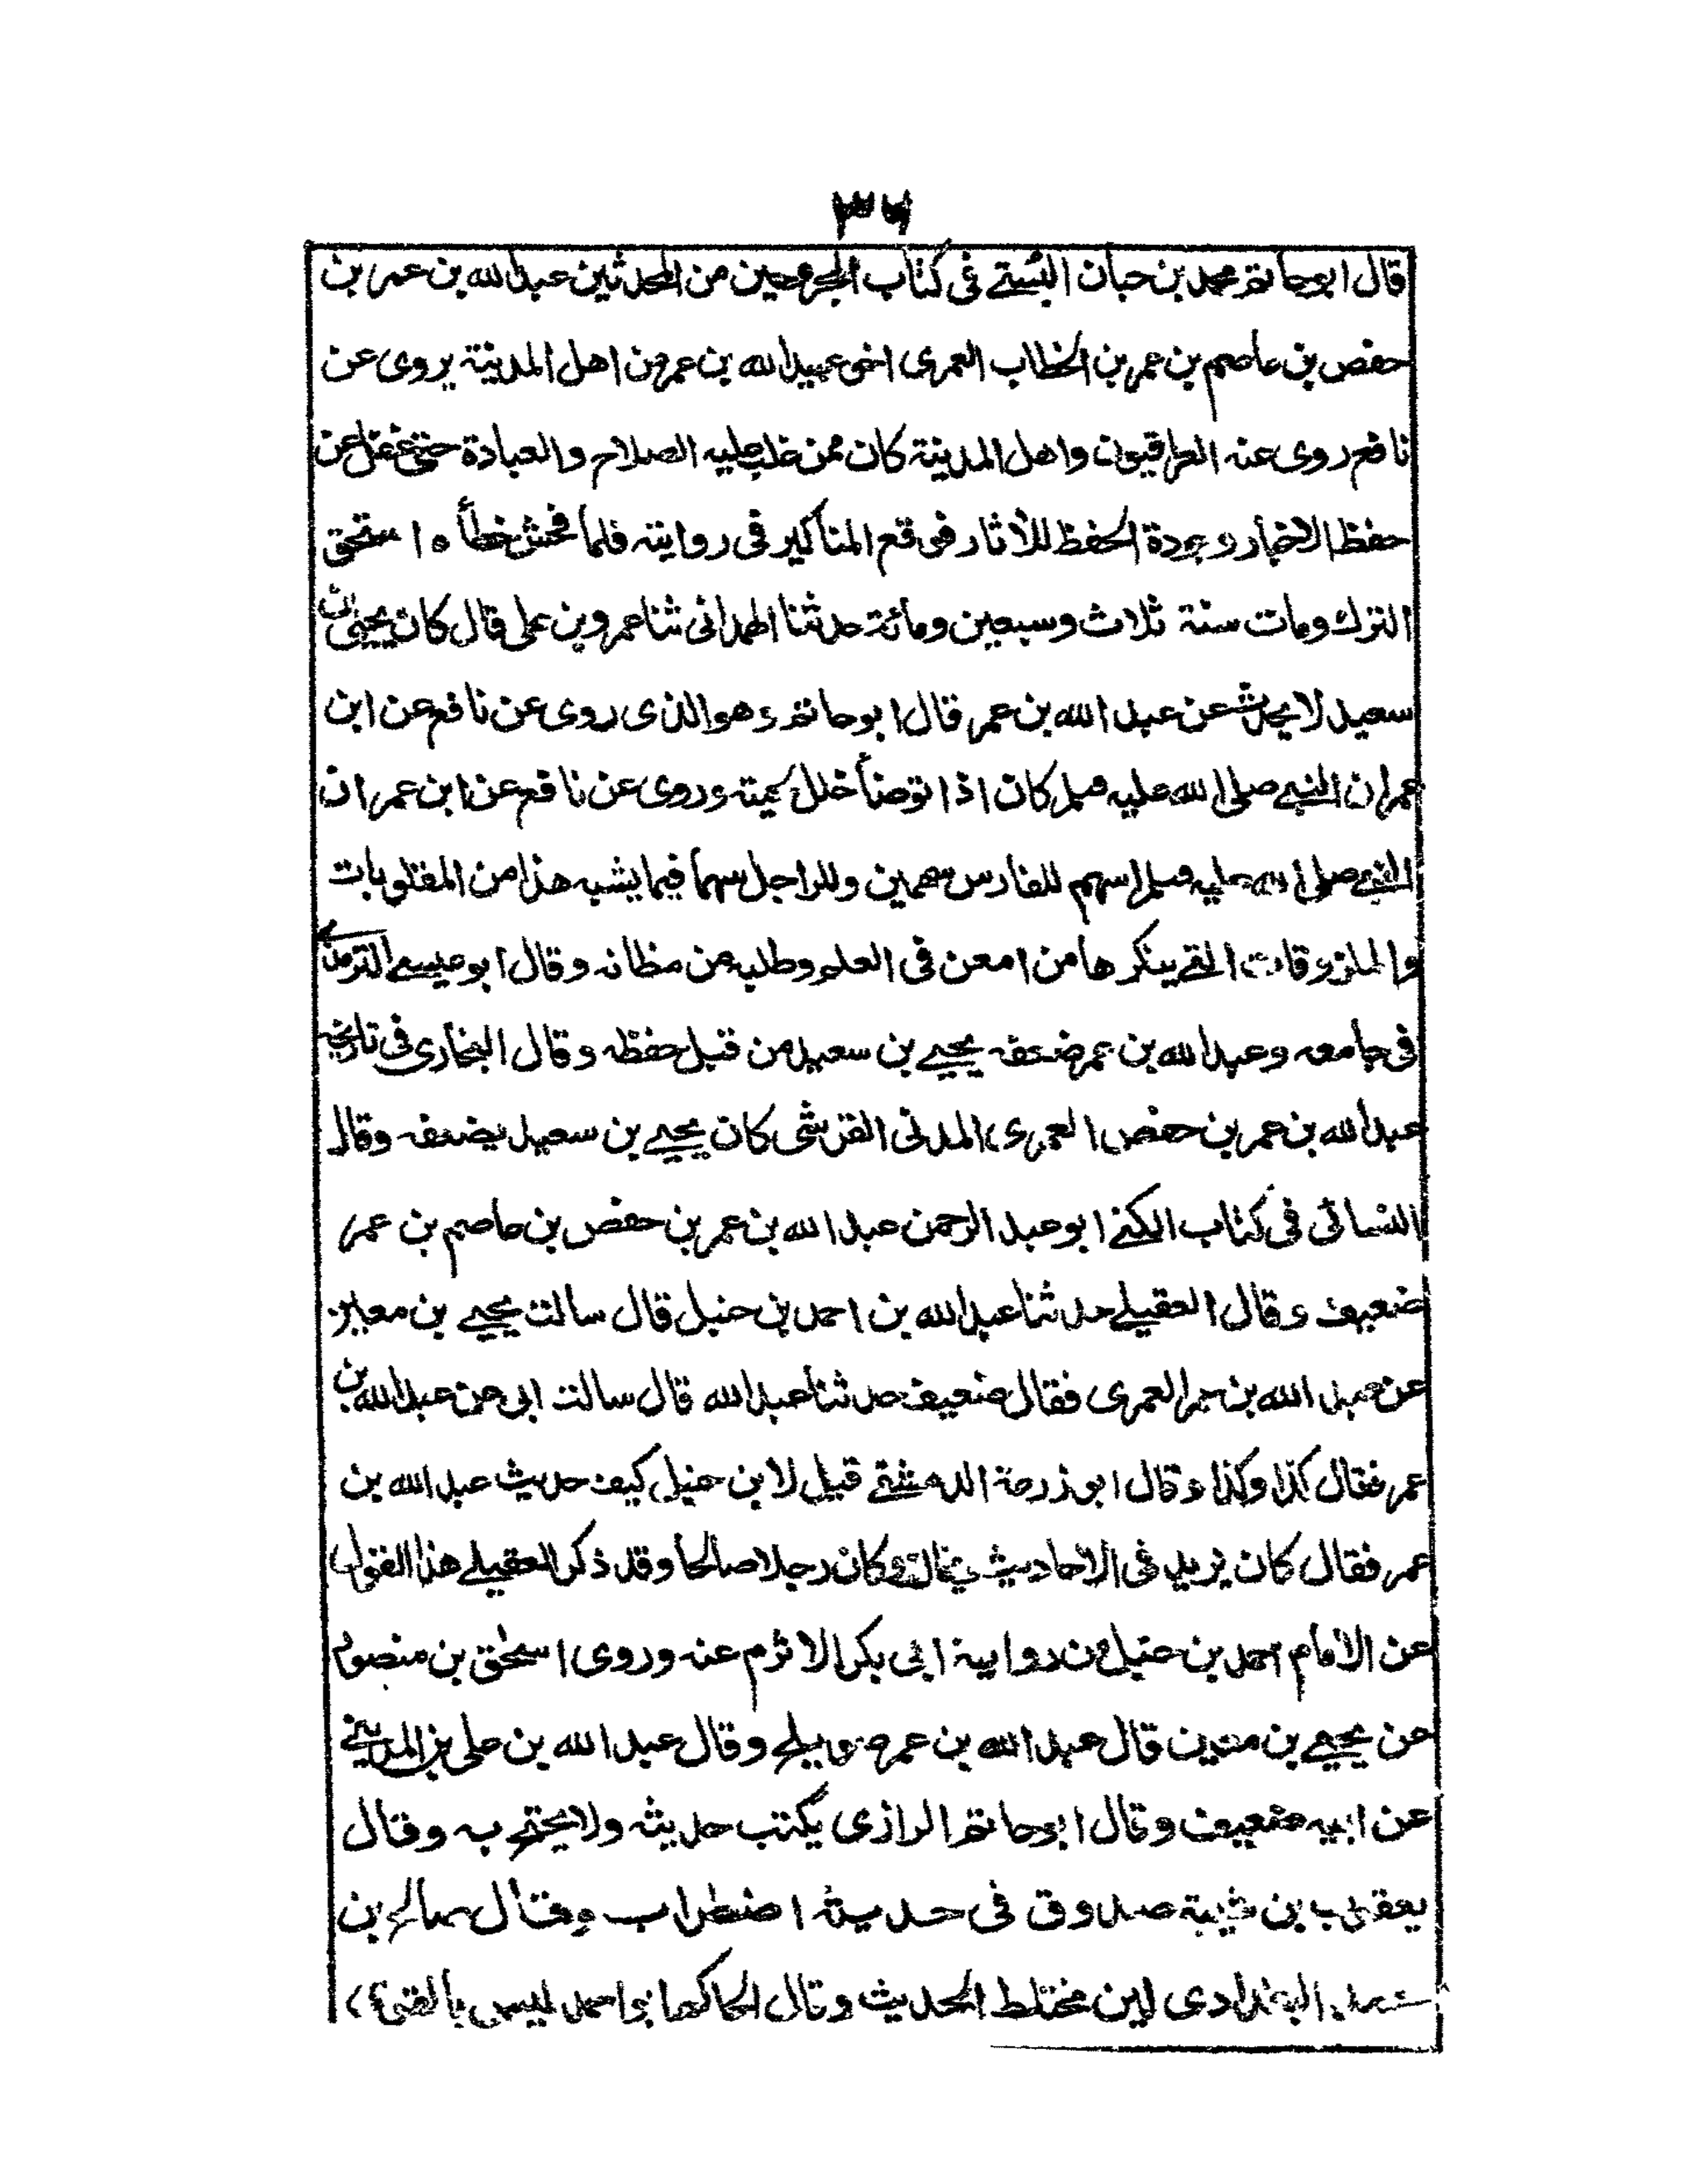 ٣٦
قال ابوحاتم محمد بن حبان البستے فی کتاب المجروحین من المحدثین عبد الله بن عمر بن
حفص بن عاصم بن عمر بن الخطاب العمری اخی عبید الله بن عمر من اهل المدینة یروی عن
نافع روی عنه العراقیون واهل المدینة کان ممن غلب علیه الصلاح والعبادة حتی غفل عن
حفظ الاخبار وجودة الحفظ للآثار فوقع المناکیر فی روایته فلما فحش خطأه استحق
الترك ومات سنة ثلاث وسبعین ومائة حدثنا الهمدانی ثنا عمرو بن علی قال کان یحیی بن
سعید لا یحدث عن عبد الله بن عمر قال ابوحاتم وهو الذی روی عن نافع عن ابن
عمر ان النبے صلی الله علیه وسلم کان اذا توضأ خلل لحیته وروی عن نافع عن ابن عمر ان
النبے صلی الله علیه وسلم اسهم للفارس سهمین وللراجل سهما فیما یشبه هذا من المقلوبات
والملزوقات التے ینکرها من امعن فی العلم وطلبه من مظانه وقال ابو عیسے الترمذے
فی جامعه وعبد الله بن عمر ضعفه یحیے بن سعید من قبل حفظه وقال البخاری فی تاریخه
عبد الله بن عمر بن حفص العمری المدنی القرشی کان یحیے بن سعید یضعفه وقال
النسائی فی کتاب الکنے ابو عبد الرحمن عبد الله بن عمر بن حفص بن عاصم بن عمر
ضعیف وقال العقیلے حدثنا عبد الله بن احمد بن حنبل قال سالت یحیے بن معین
عن عبد الله بن عمر العمری فقال ضعیف حدثنا عبد الله قال سالت ابی عن عبد الله بن
عمر فقال کذا وکذا وقال ابو زرعة الدمشقے قیل لابن حنبل کیف حدیث عبد الله بن
عمر فقال کان یزید فی الاحادیث یخالف وکان رجلا صالحا وقد ذکر العقیلے هذا القول
عن الامام احمد بن حنبل من روایة ابی بکر الاثرم عنه وروی اسحٰق بن منصور
عن یحیے بن معین قال عبد الله بن عمر صویلح وقال عبد الله بن علی بن المدینے
عن ابیه ضعیف وقال ابوحاتم الرازی یکتب حدیثه ولا یحتج به وقال
یعقوب بن شیبة صدوق فی حدیثه اضطراب وقال صالح بن
محمد البغدادی لین مختلط الحدیث وقال الحاکم ابو احمد لیس بالقوی